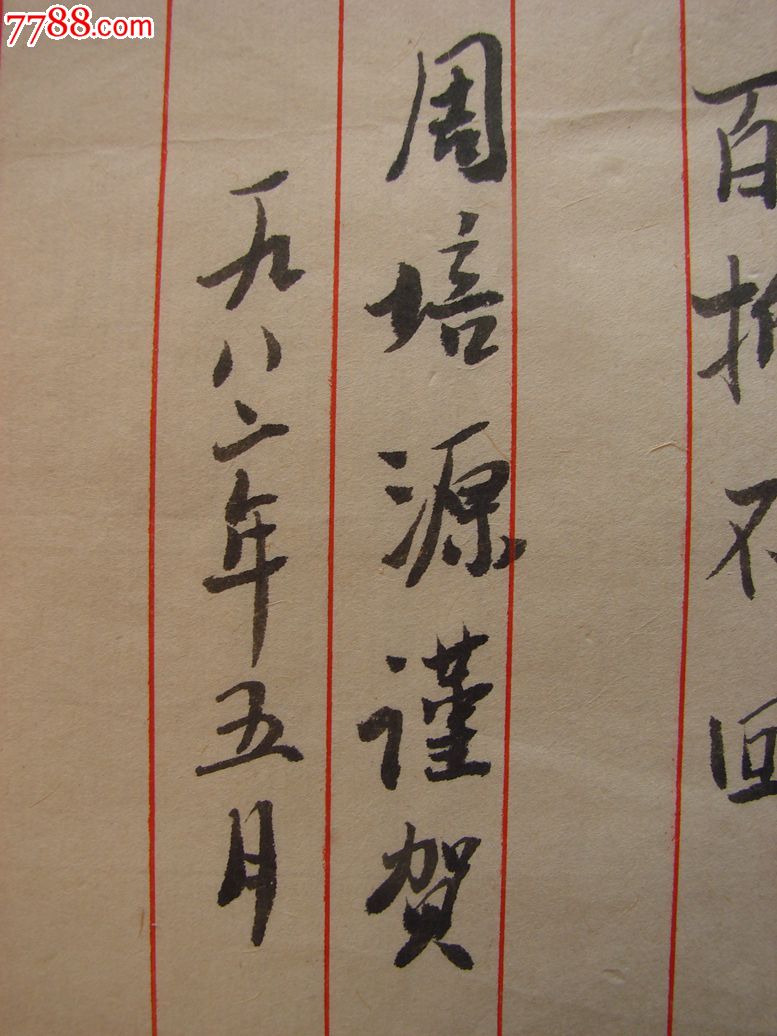 7788.com
百折不回
周培源谨贺
一九八二年五月